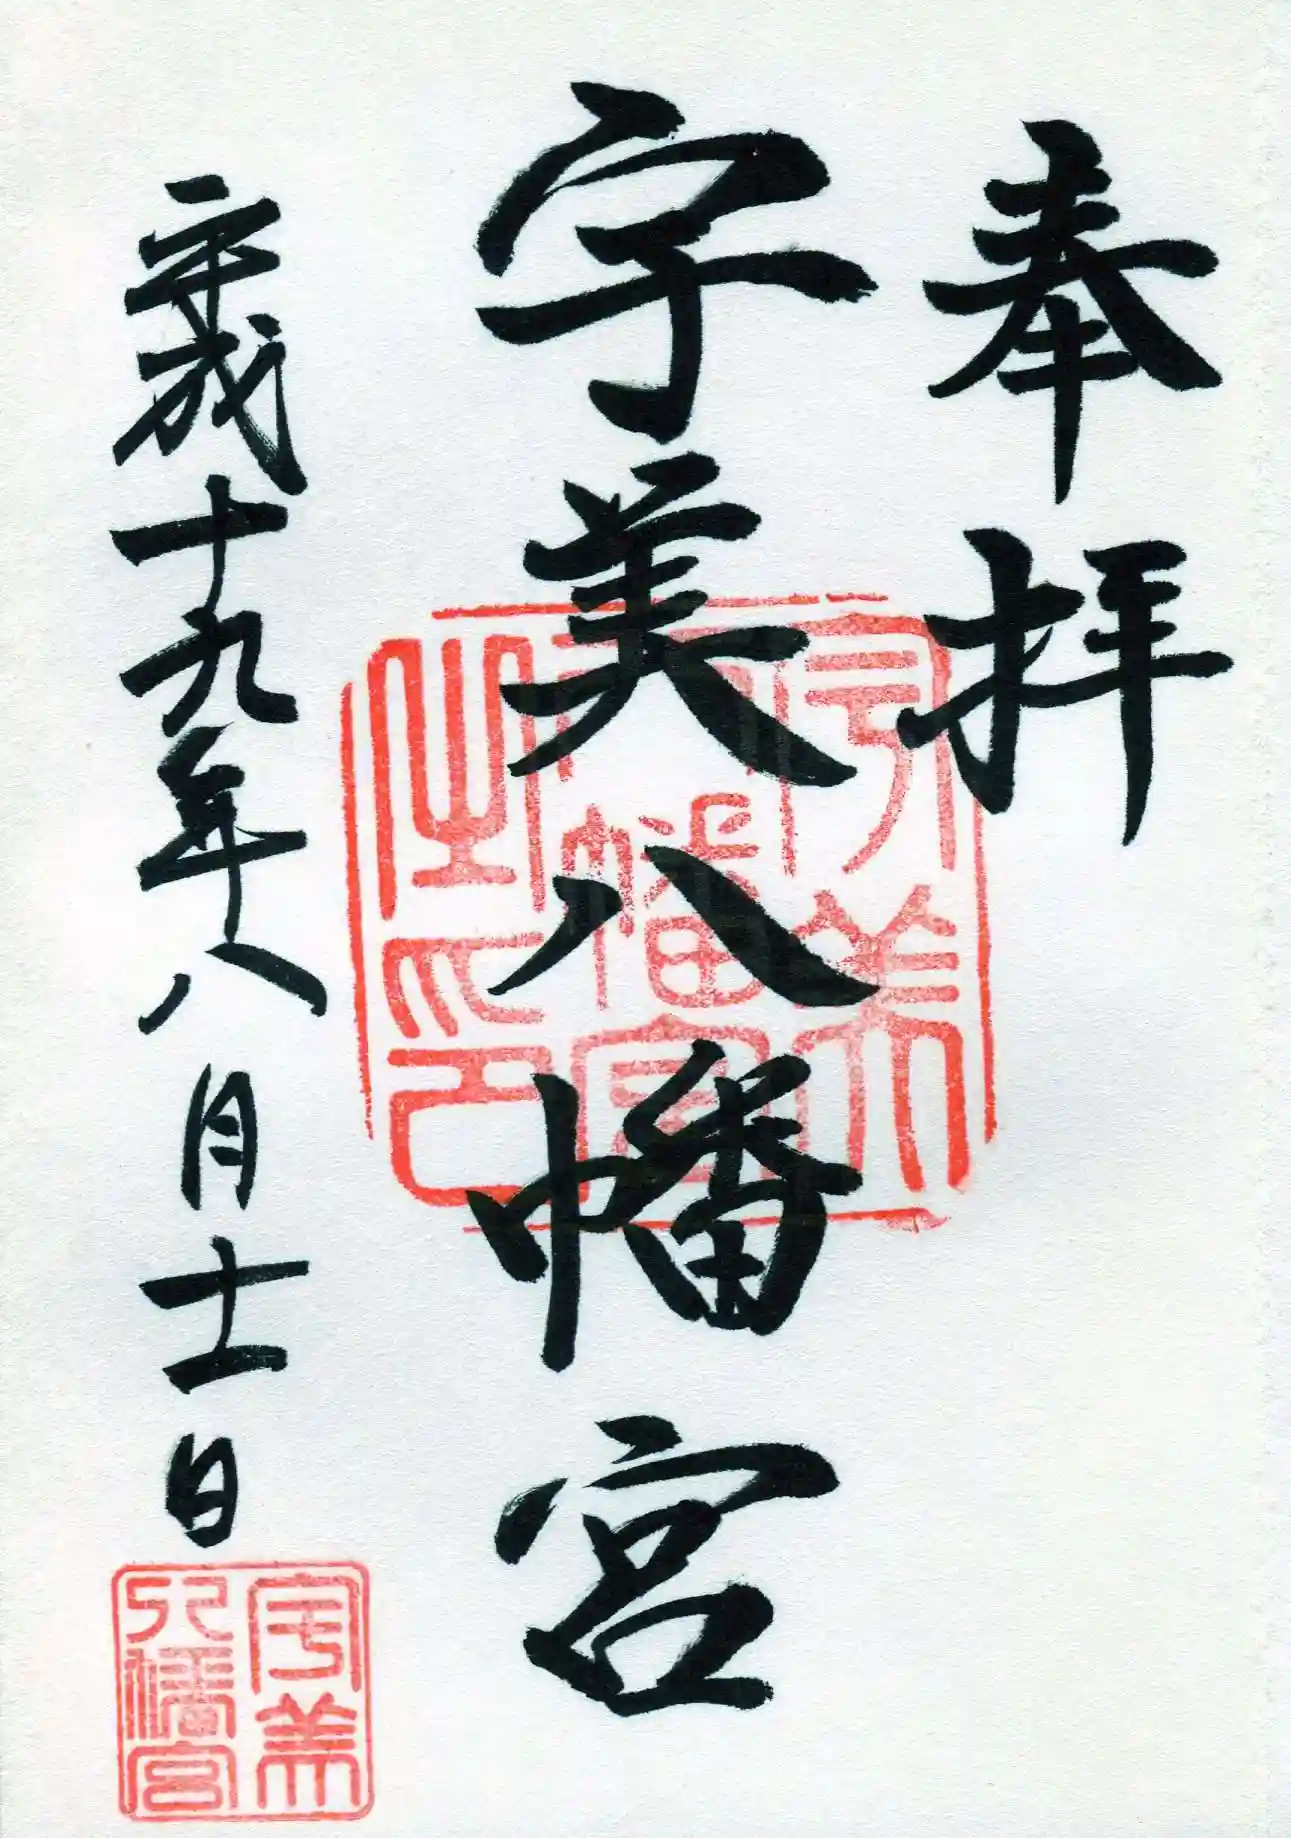 奉拝
宇美八幡宮
宇美八幡宮之印
平成十九年八月十一日
宇美八幡宮